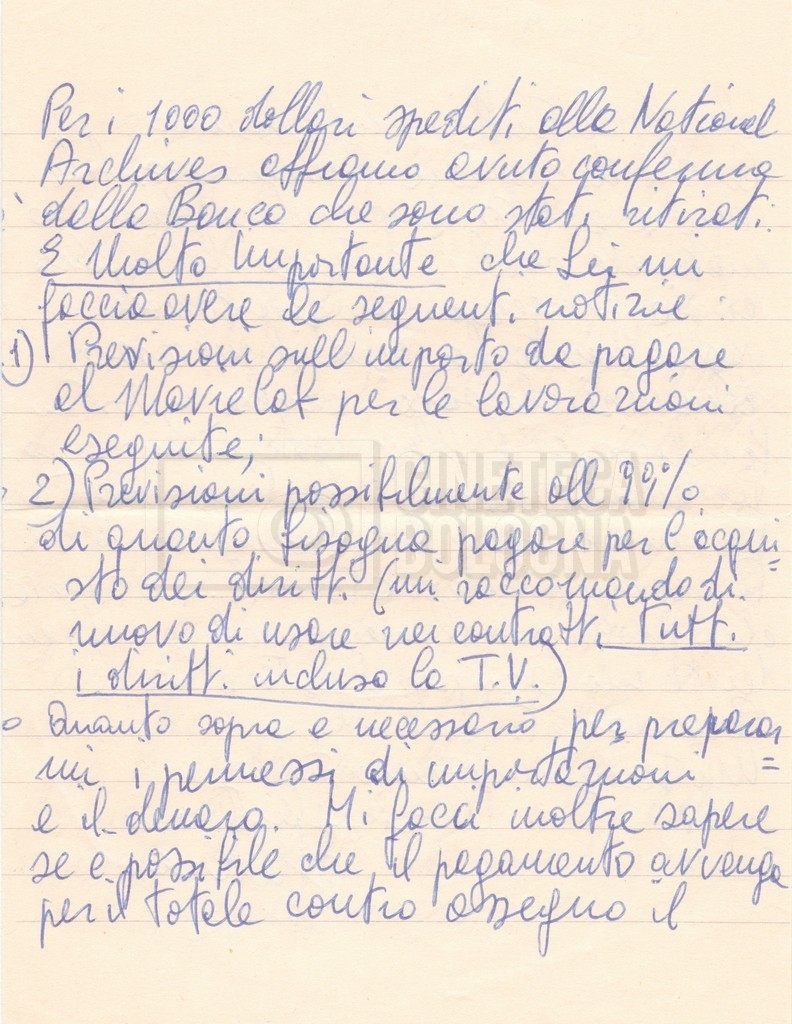 Per i 1000 dollari spediti alla National
Archives abbiamo avuto conferma
dalla Banca che sono stati ritirati.
E Molto Importante che Lei mi
faccia avere le seguenti notizie:
1) Previsioni sull'importo da pagare
al Movielab per le lavorazioni
eseguite;
2) Previsioni possibilmente all 99%
di quanto bisogna pagare per l'acqui=
sto dei diritti (mi raccomando di
nuovo di usare nei contratti Tutti
i diritti incluso la T.V.)
Quanto sopra e necessario per preparar=
mi i permessi di importazioni
e il denaro. Mi facci inoltre sapere
se e possibile che il pagamento avvenga
per il totale contro assegno il
CINETECA
BOLOGNA